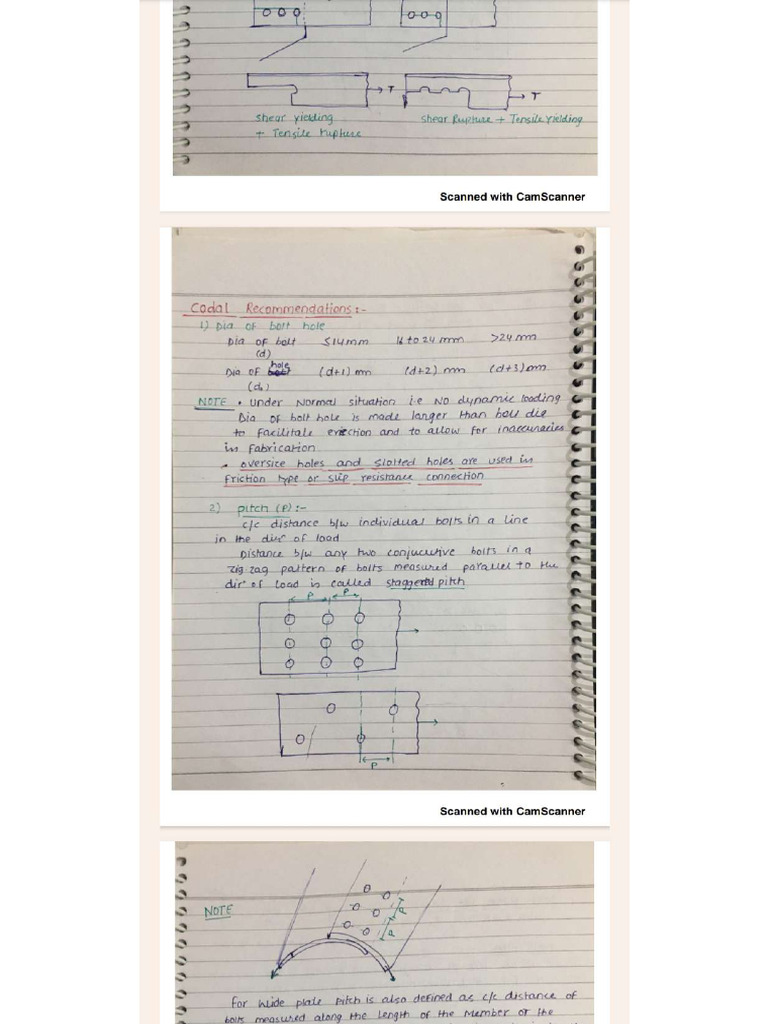 T
T
shear yielding
+ Tensile rupture
shear Rupture + Tensile yielding
Scanned with CamScanner
Codal Recommendations :-
1) Dia. of bolt hole
Dia of bolt ≤14mm 16 to 24 mm >24 mm
(d)
hole
Dia of (d+1) mm (d+2) mm (d+3) mm
(do)
NOTE • Under Normal situation i.e NO dynamic loading
Dia of bolt hole is made larger than bolt dia
to facilitate erection and to allow for inaccuracies
in fabrication
• oversice holes and slotted holes are used in
friction type or slip resistance connection
2) pitch (P) :-
c/c distance b/w individual bolts in a line
in the dirn of load
Distance b/w any two conjucutive bolts in a
zig zag pattern of bolts measured parallel to the
dirn of Load is called staggered pitch
P P
P
Scanned with CamScanner
NOTE
P
P
for wide plate pitch is also defined as c/c distance of
bolts measured along the length of the Member or the